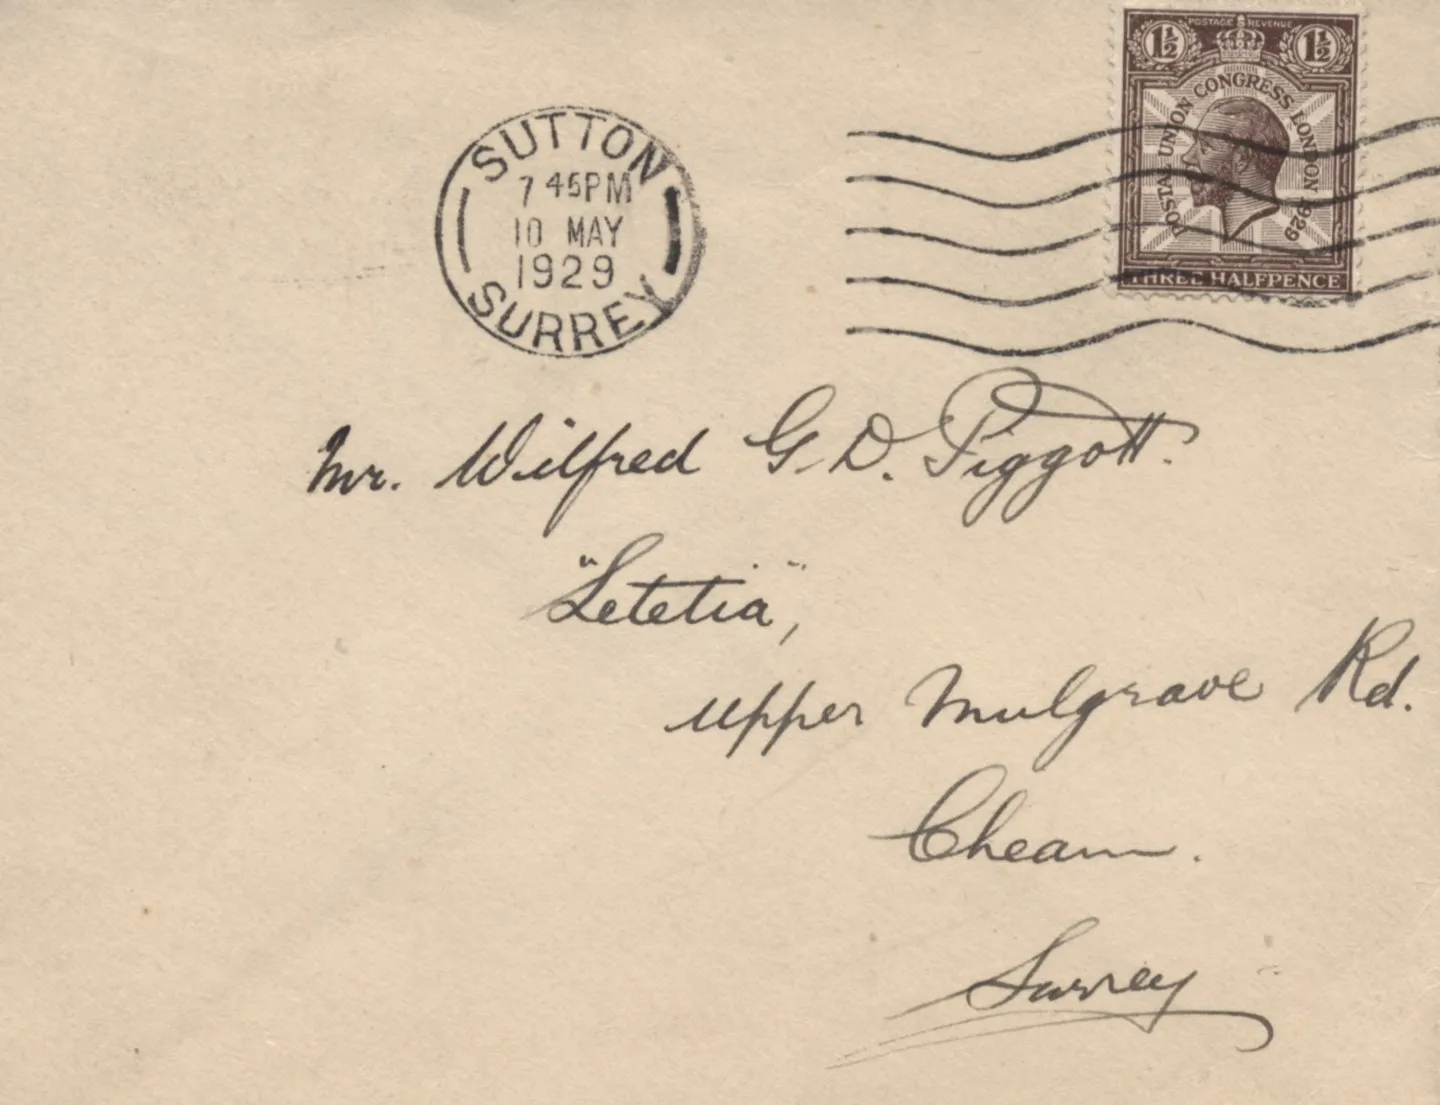 POSTAGE REVENUE
1½ 1½
POSTAL UNION CONGRESS LONDON 1929
THREE HALFPENCE
SUTTON
7 45PM
10 MAY
1929
SURREY
Mr. Wilfred G. D. Piggott.
"Letetia",
Upper Mulgrave Rd.
Cheam.
Surrey